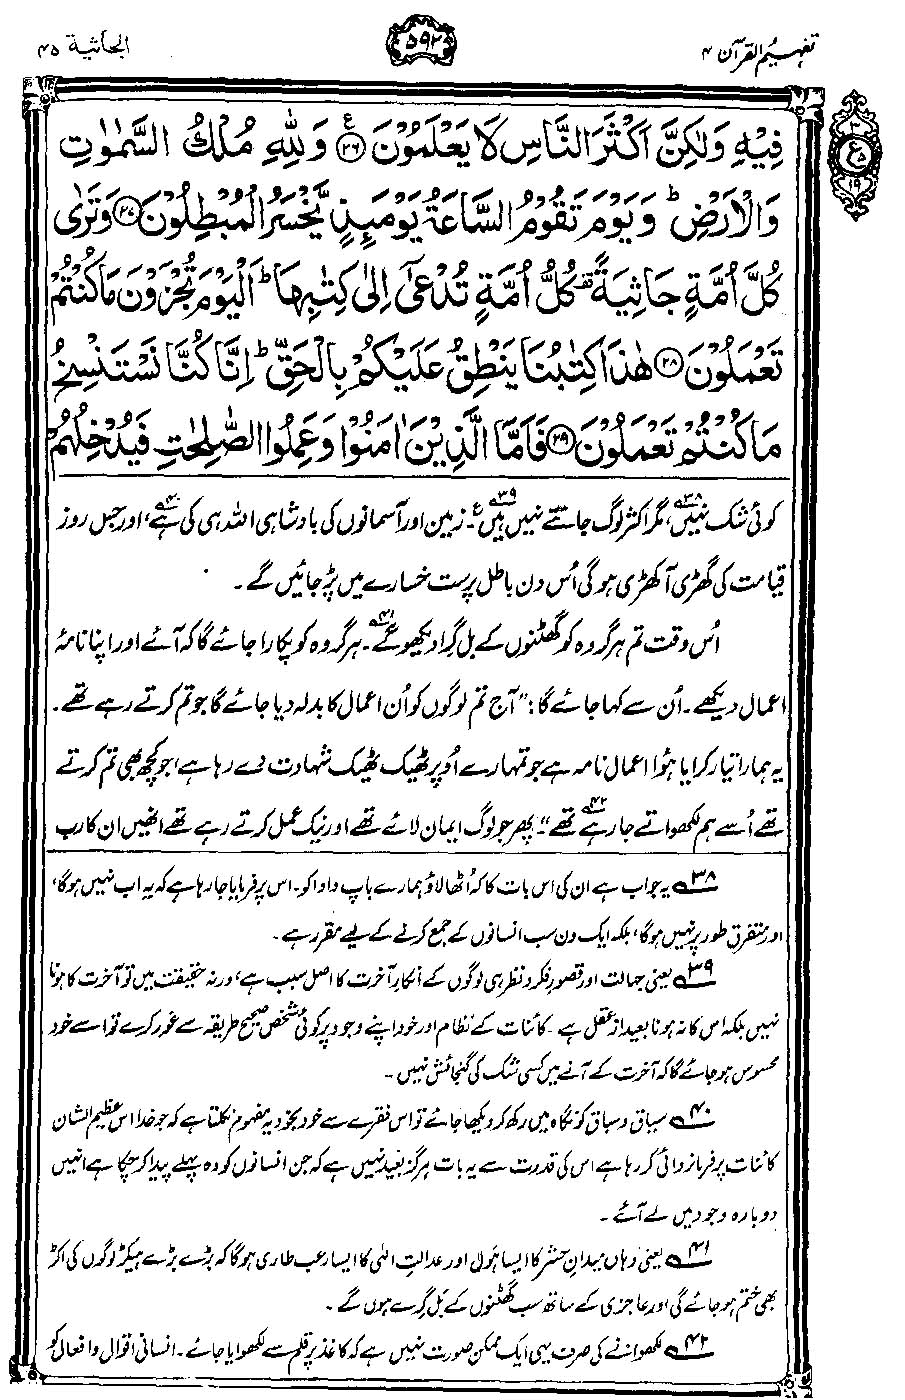 تفہیم القرآن ۴
۵۹۲
الجاثیۃ ۴۵
فِيْهِ وَلٰكِنَّ اَكْثَرَ النَّاسِ لَا يَعْلَمُوْنَ ﴿۲۶﴾ ع وَلِلّٰهِ مُلْكُ السَّمٰوٰتِ
وَالْاَرْضِ ؕ وَيَوْمَ تَقُوْمُ السَّاعَةُ يَوْمَئِذٍ يَّخْسَرُ الْمُبْطِلُوْنَ ﴿۲۷﴾ وَتَرٰى
كُلَّ اُمَّةٍ جَاثِيَةً ۫ كُلُّ اُمَّةٍ تُدْعٰۤى اِلٰى كِتٰبِهَا ؕ اَلْيَوْمَ تُجْزَوْنَ مَا كُنْتُمْ
تَعْمَلُوْنَ ﴿۲۸﴾ هٰذَا كِتٰبُنَا يَنْطِقُ عَلَيْكُمْ بِالْحَقِّ ؕ اِنَّا كُنَّا نَسْتَنْسِخُ
مَا كُنْتُمْ تَعْمَلُوْنَ ﴿۲۹﴾ فَاَمَّا الَّذِيْنَ اٰمَنُوْا وَعَمِلُوا الصّٰلِحٰتِ فَيُدْخِلُهُمْ
ع ۵ ۱۹
کوئی شک نہیں۳۸، مگر اکثر لوگ جانتے نہیں ہیں۳۹ ع۔ زمین اور آسمانوں کی بادشاہی اللہ ہی کی ہے۴۰، اور جس روز
قیامت کی گھڑی آ کھڑی ہو گی اُس دن باطل پرست خسارے میں پڑ جائیں گے۔
اُس وقت تم ہر گروہ کو گھٹنوں کے بل گرا دیکھو گے۴۱۔ ہر گروہ کو پکارا جائے گا کہ آئے اور اپنا نامۂ
اعمال دیکھے۔ اُن سے کہا جائے گا: “آج تم لوگوں کو اُن اعمال کا بدلہ دیا جائے گا جو تم کرتے رہے تھے۔
یہ ہمارا تیار کرایا ہُوا اعمال نامہ ہے جو تمہارے اُوپر ٹھیک ٹھیک شہادت دے رہا ہے، جو کچھ بھی تم کرتے
تھے اُسے ہم لکھواتے جا رہے تھے۴۲”۔ پھر جو لوگ ایمان لائے تھے اور نیک عمل کرتے رہے تھے انھیں ان کا رب
۳۸ یہ جواب ہے ان کی اس بات کا کہ اُٹھا لاؤ ہمارے باپ دادا کو۔ اس پر فرمایا جا رہا ہے کہ یہ اب نہیں ہو گا،
اور متفرق طور پر نہیں ہو گا، بلکہ ایک دن سب انسانوں کے جمع کرنے کے لیے مقرر ہے۔
۳۹ یعنی جہالت اور قصورِ فکر و نظر ہی لوگوں کے انکارِ آخرت کا اصل سبب ہے، ورنہ حقیقت میں تو آخرت کا ہونا
نہیں بلکہ اس کا نہ ہونا بعید از عقل ہے۔ کائنات کے نظام اور خود اپنے وجود پر کوئی شخص صحیح طریقہ سے غور کرے تو اسے خود
محسوس ہو جائے گا کہ آخرت کے آنے میں کسی شک کی گنجائش نہیں۔
۴۰ سیاق و سباق کو نگاہ میں رکھ کر دیکھا جائے تو اس فقرے سے خود بخود یہ مفہوم نکلتا ہے کہ جو خدا اس عظیم الشان
کائنات پر فرمانروائی کر رہا ہے اس کی قدرت سے یہ بات ہرگز بعید نہیں ہے کہ جن انسانوں کو وہ پہلے پیدا کر چکا ہے انہیں
دوبارہ وجود میں لے آئے۔
۴۱ یعنی وہاں میدانِ حشر کا ایسا ہَول اور عدالتِ الٰہی کا ایسا رعب طاری ہو گا کہ بڑے بڑے ہیکڑ لوگوں کی اکڑ
بھی ختم ہو جائے گی اور عاجزی کے ساتھ سب گھٹنوں کے بَل گِرے ہوں گے۔
۴۲ لکھوانے کی صرف یہی ایک ممکن صورت نہیں ہے کہ کاغذ پر قلم سے لکھوایا جائے۔ انسانی اقوال و افعال کو